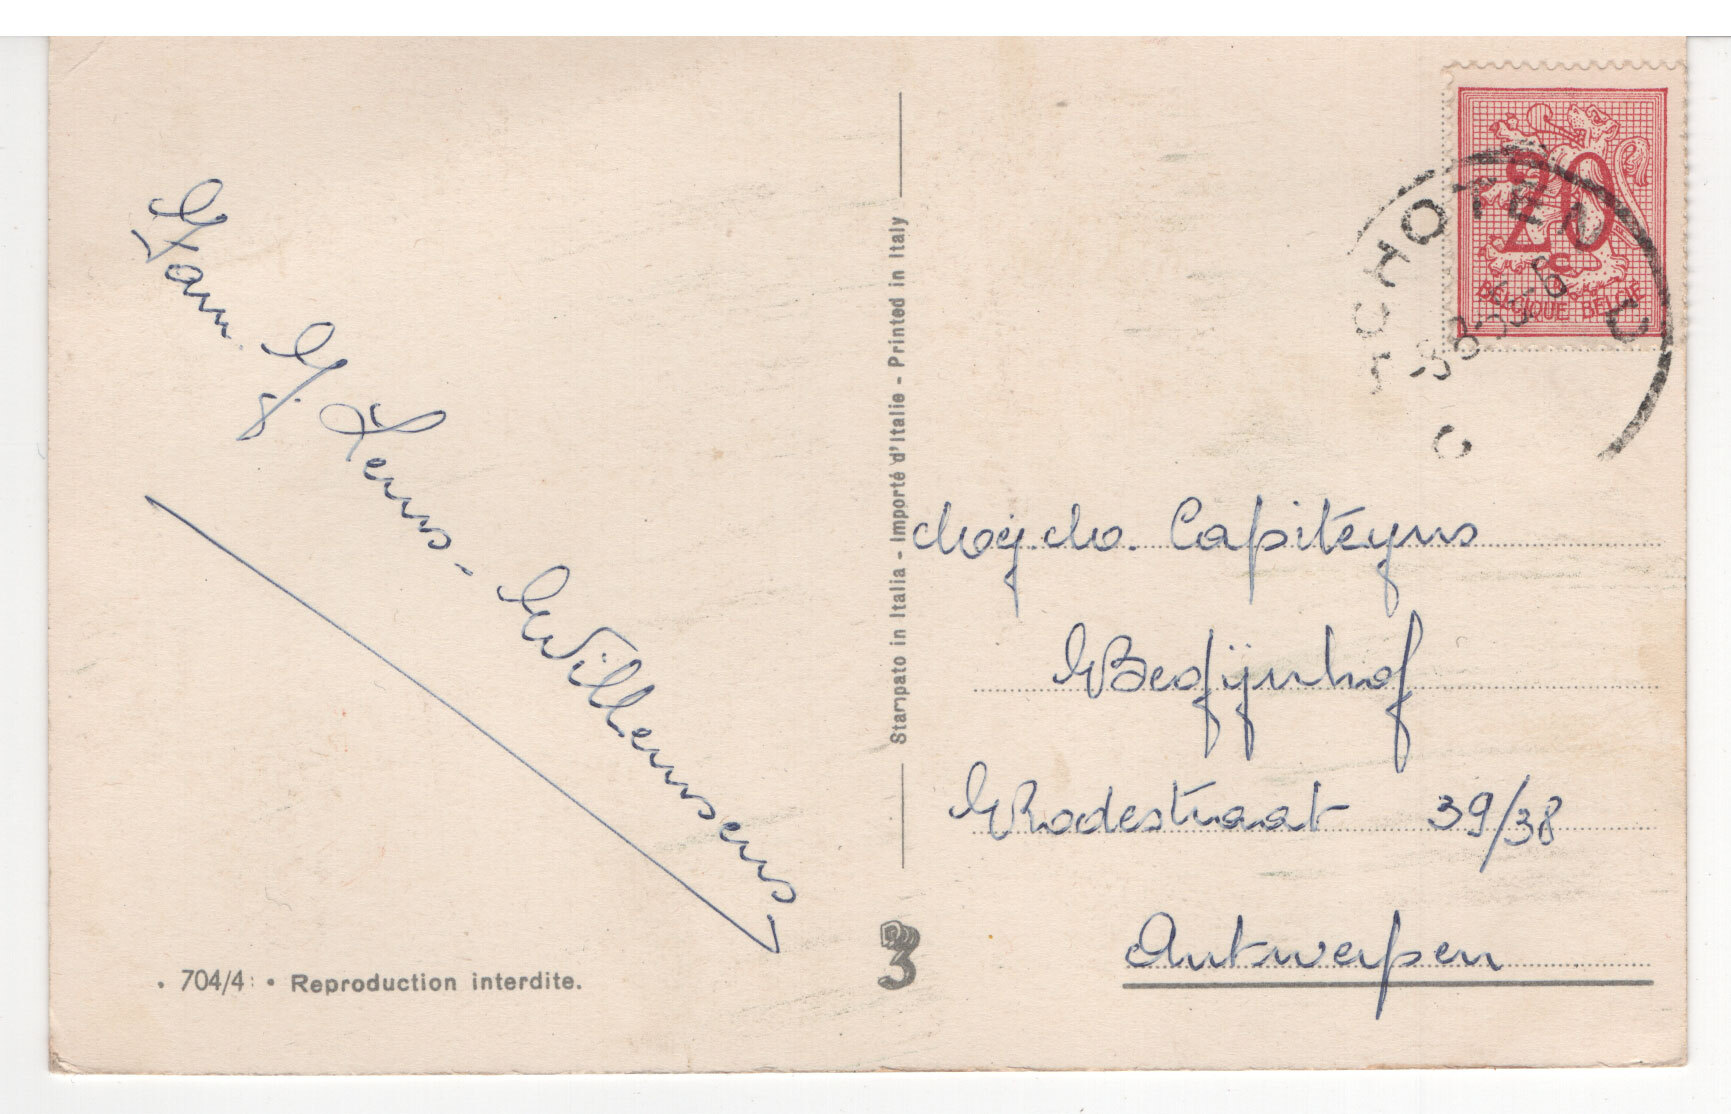 Fam. G. Lenns - Willemsens
Stampato in Italia - Importé d'Italie - Printed in Italy
. 704/4 • Reproduction interdite.
3
20
BELGIQUE BELGIË
SCHOTEN
Mej. M. Capiteyns
Begijnhof
Rodestraat 39/38
Antwerpen